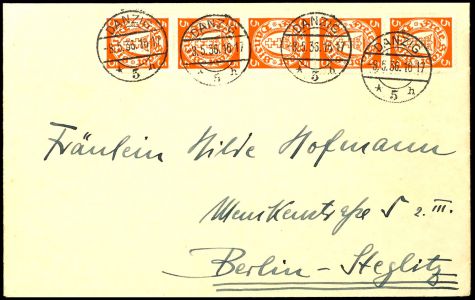 DANZIG
8.5.36.16-17
* 5 h
DANZIG
8.5.36.16-17
* 5 h
DANZIG
8.5.36.16-17
* 5 h
DANZIG
8.5.36.16-17
* 5 h
Fräulein Hilde Hofmann
Menkenstraße 5 2. III.
Berlin-Steglitz